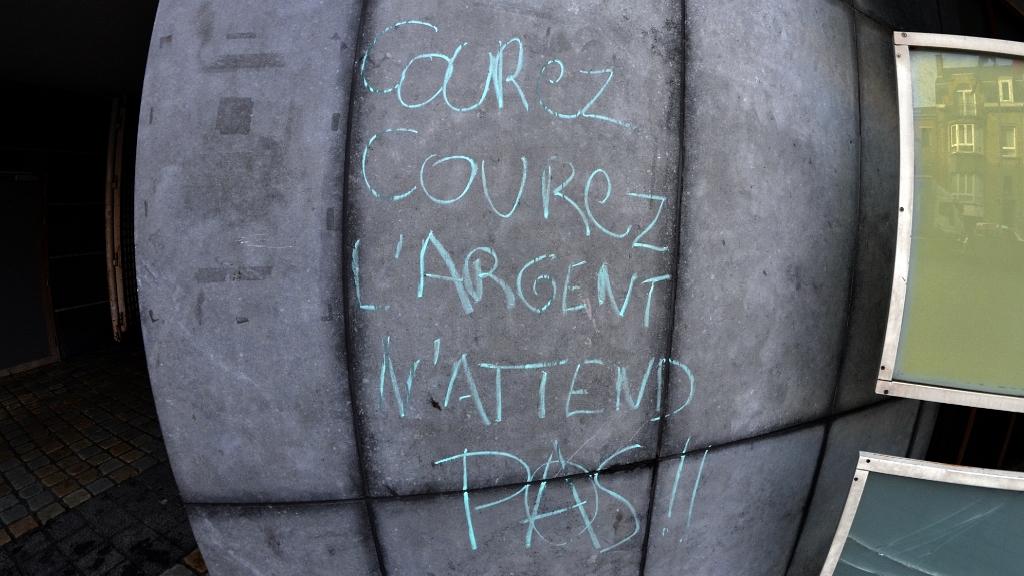 COUREZ
COUREZ
L'ARGENT
N'ATTEND
PAS !!